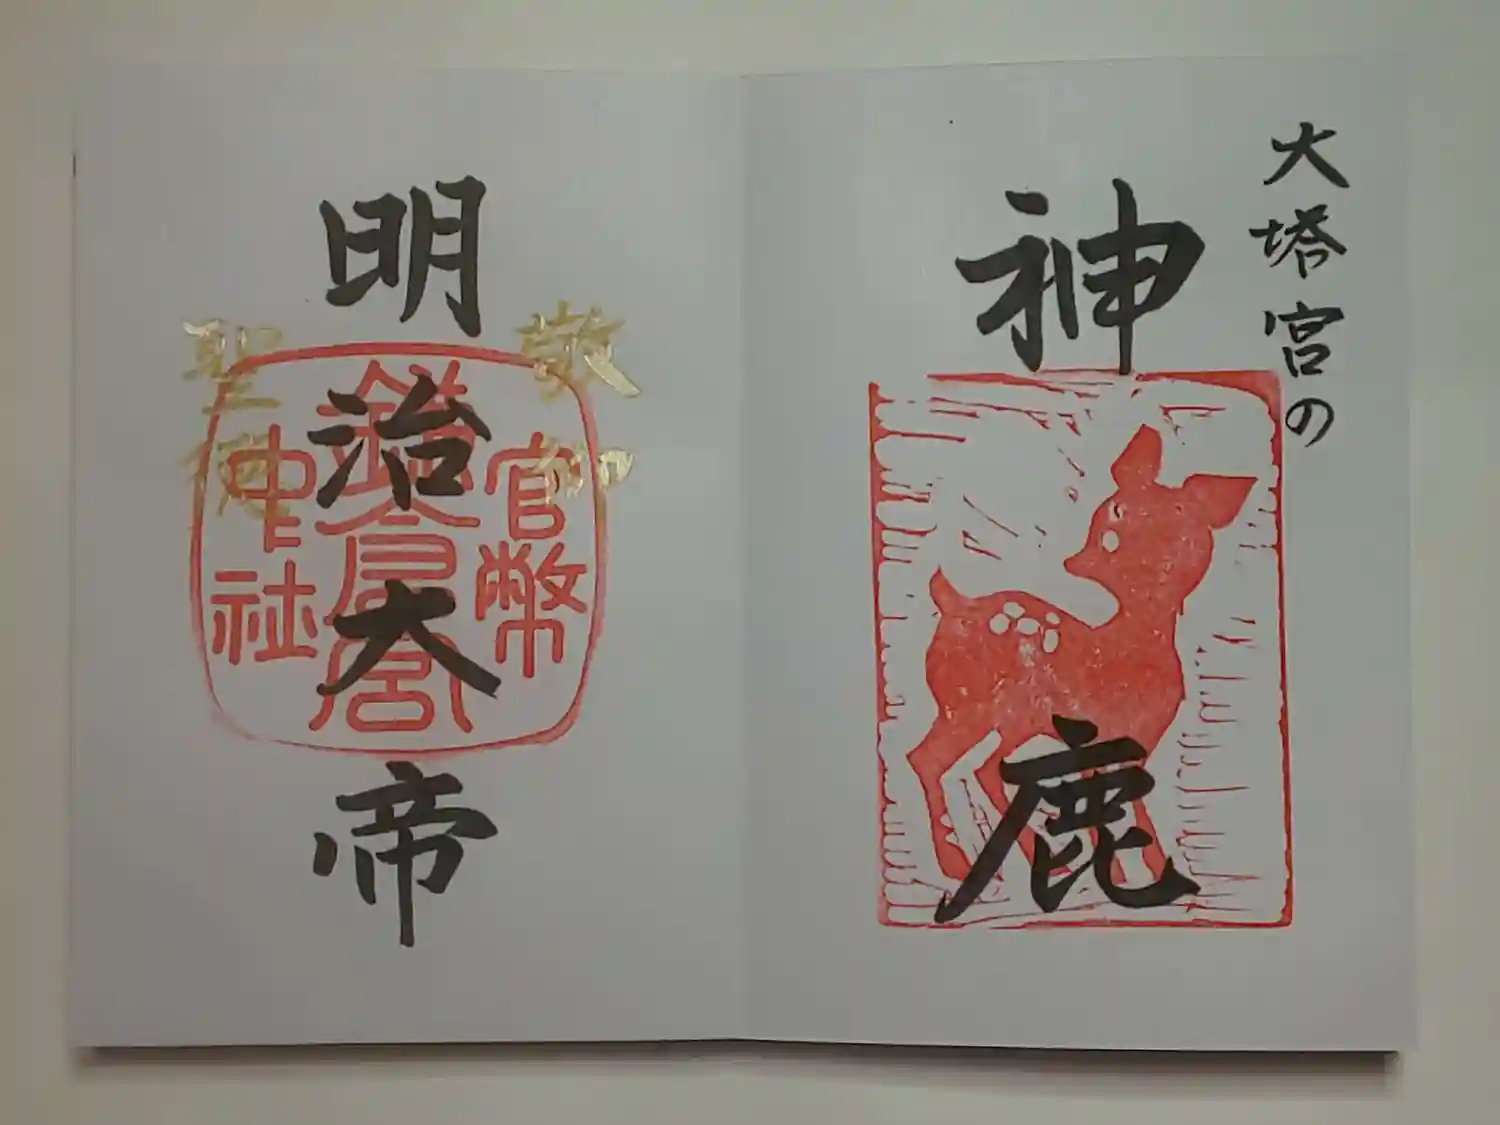 大塔宮の
神鹿
敬仰
明治大帝
聖徳
官幣
鎌倉宮
中社